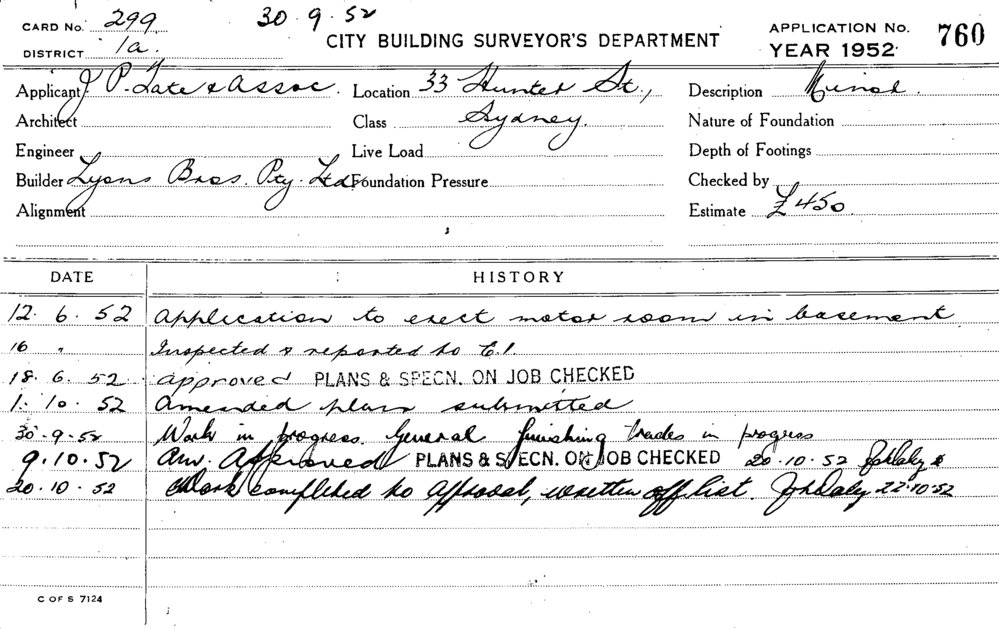 CARD No. 299 30.9.52 APPLICATION No. 760
DISTRICT 1a. CITY BUILDING SURVEYOR'S DEPARTMENT YEAR 1952
Applicant J P. Tate & Assoc. Location 33 Hunter St., Description Minor.
Architect Class Sydney. Nature of Foundation
Engineer Live Load Depth of Footings
Builder Lyons Bros. Pty. Ltd. Foundation Pressure Checked by
Alignment Estimate £450
DATE HISTORY
12. 6. 52 Application to erect motor room in basement
16 " Inspected & reported to C.I.
18. 6. 52 approved PLANS & SPECN. ON JOB CHECKED
1. 10. 52 Amended plan submitted
30.9.52 Work in progress. General finishing trades in progress
9.10.52 Am. Approved PLANS & SPECN. ON JOB CHECKED 20.10.52 JohDaly
20.10.52 Work completed to approval, written off list. JohDaly 22.10.52
C OF S 7124